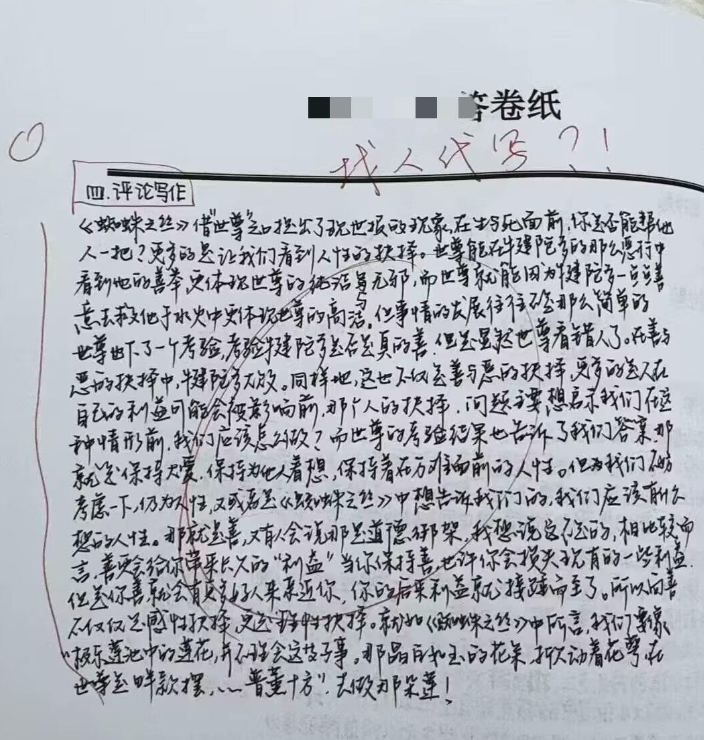 答卷纸
找人代写?!
四.评论写作
《蜘蛛之丝》借"世尊"之口提出了现世报的现象,在生与死面前,你是否能帮他
人一把?更多的是让我们看到人性的抉择。世尊能在犍陀多的那么恶行中
看到他的善举,更体现世尊的纯洁与无邪,而世尊就能因为犍陀多一点点善
意去救他于水火中更体现世尊的高洁。但事情的发展往往不会那么简单的
世尊也下了一个考验,考验犍陀多是否是真的善.但是显然世尊看错人了。在善与
恶的抉择中,犍陀多失败。同样地,这也不仅是善与恶的抉择,更多的是人在
自己的利益可能会被影响前,那个人的抉择.问题主要想启示我们在这
种情形前,我们应该怎么做?而世尊的考验结果也告诉了我们答案,那
就是保持大爱,保持为他人着想,保持着在万难面前的人性。但为我们不妨
考虑一下,仍为人性,又或者是《蜘蛛之丝》中想告诉我们的,我们应该有什么
想的人性。那就是善,又有人会说那是道德绑架,我想说它不是的,相比较而
言,善更会给你带来长久的"利益"当你保持善,也许你会损失现有的一些利益.
但是你善就会有更多好人来亲近你,你的后来利益就接踵而至了。所以向善
不仅仅是感性抉择,更是理性抉择。就如《蜘蛛之丝》中所言,我们要像
"极乐莲池中的莲花,并不理会这些事。那晶白如玉的花朵,掀动着花萼在
世尊足畔款摆,……普薰十方".去做那朵莲!